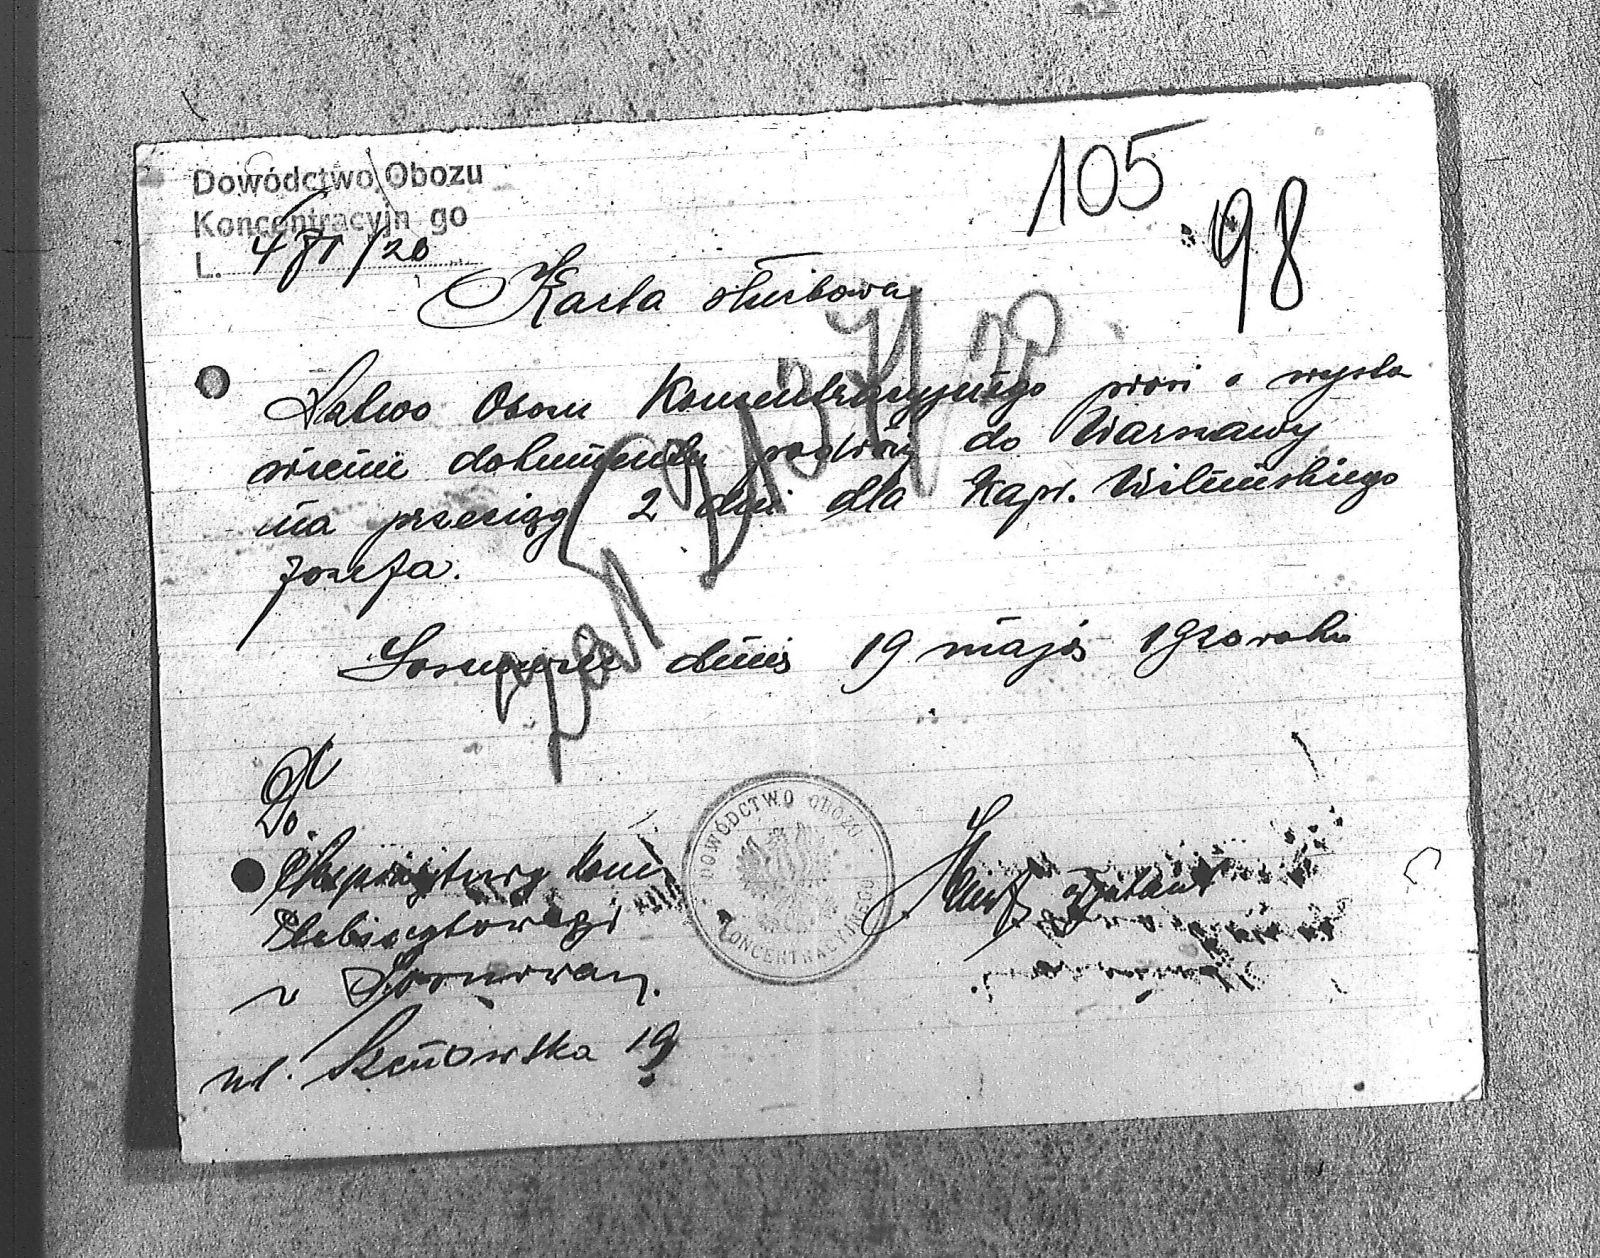 Dowództwo Obozu
Koncentracyjn go
L. 471/20
105
98
Karta służbowa
Dałwo Obozu Koncentracyjnego prosi o wysta
wienie dokumentu podróży do Warszawy
na przeciąg 2 dni dla Kapr. Wilimskiego
Józefa.
Sosnowiec dnia 19 maja 1920 roku
Do
Ekspozytury Kom.
Plebiscytowego
w Sosnowcu.
ul. 19
DOWÓDCTWO OBOZU KONCENTRACYJNEGO
adjutant